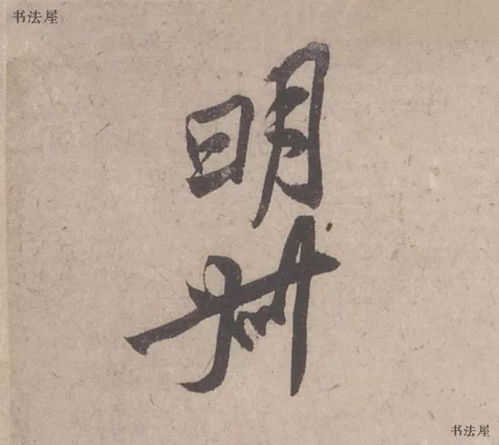 书法屋
明叔
书法屋